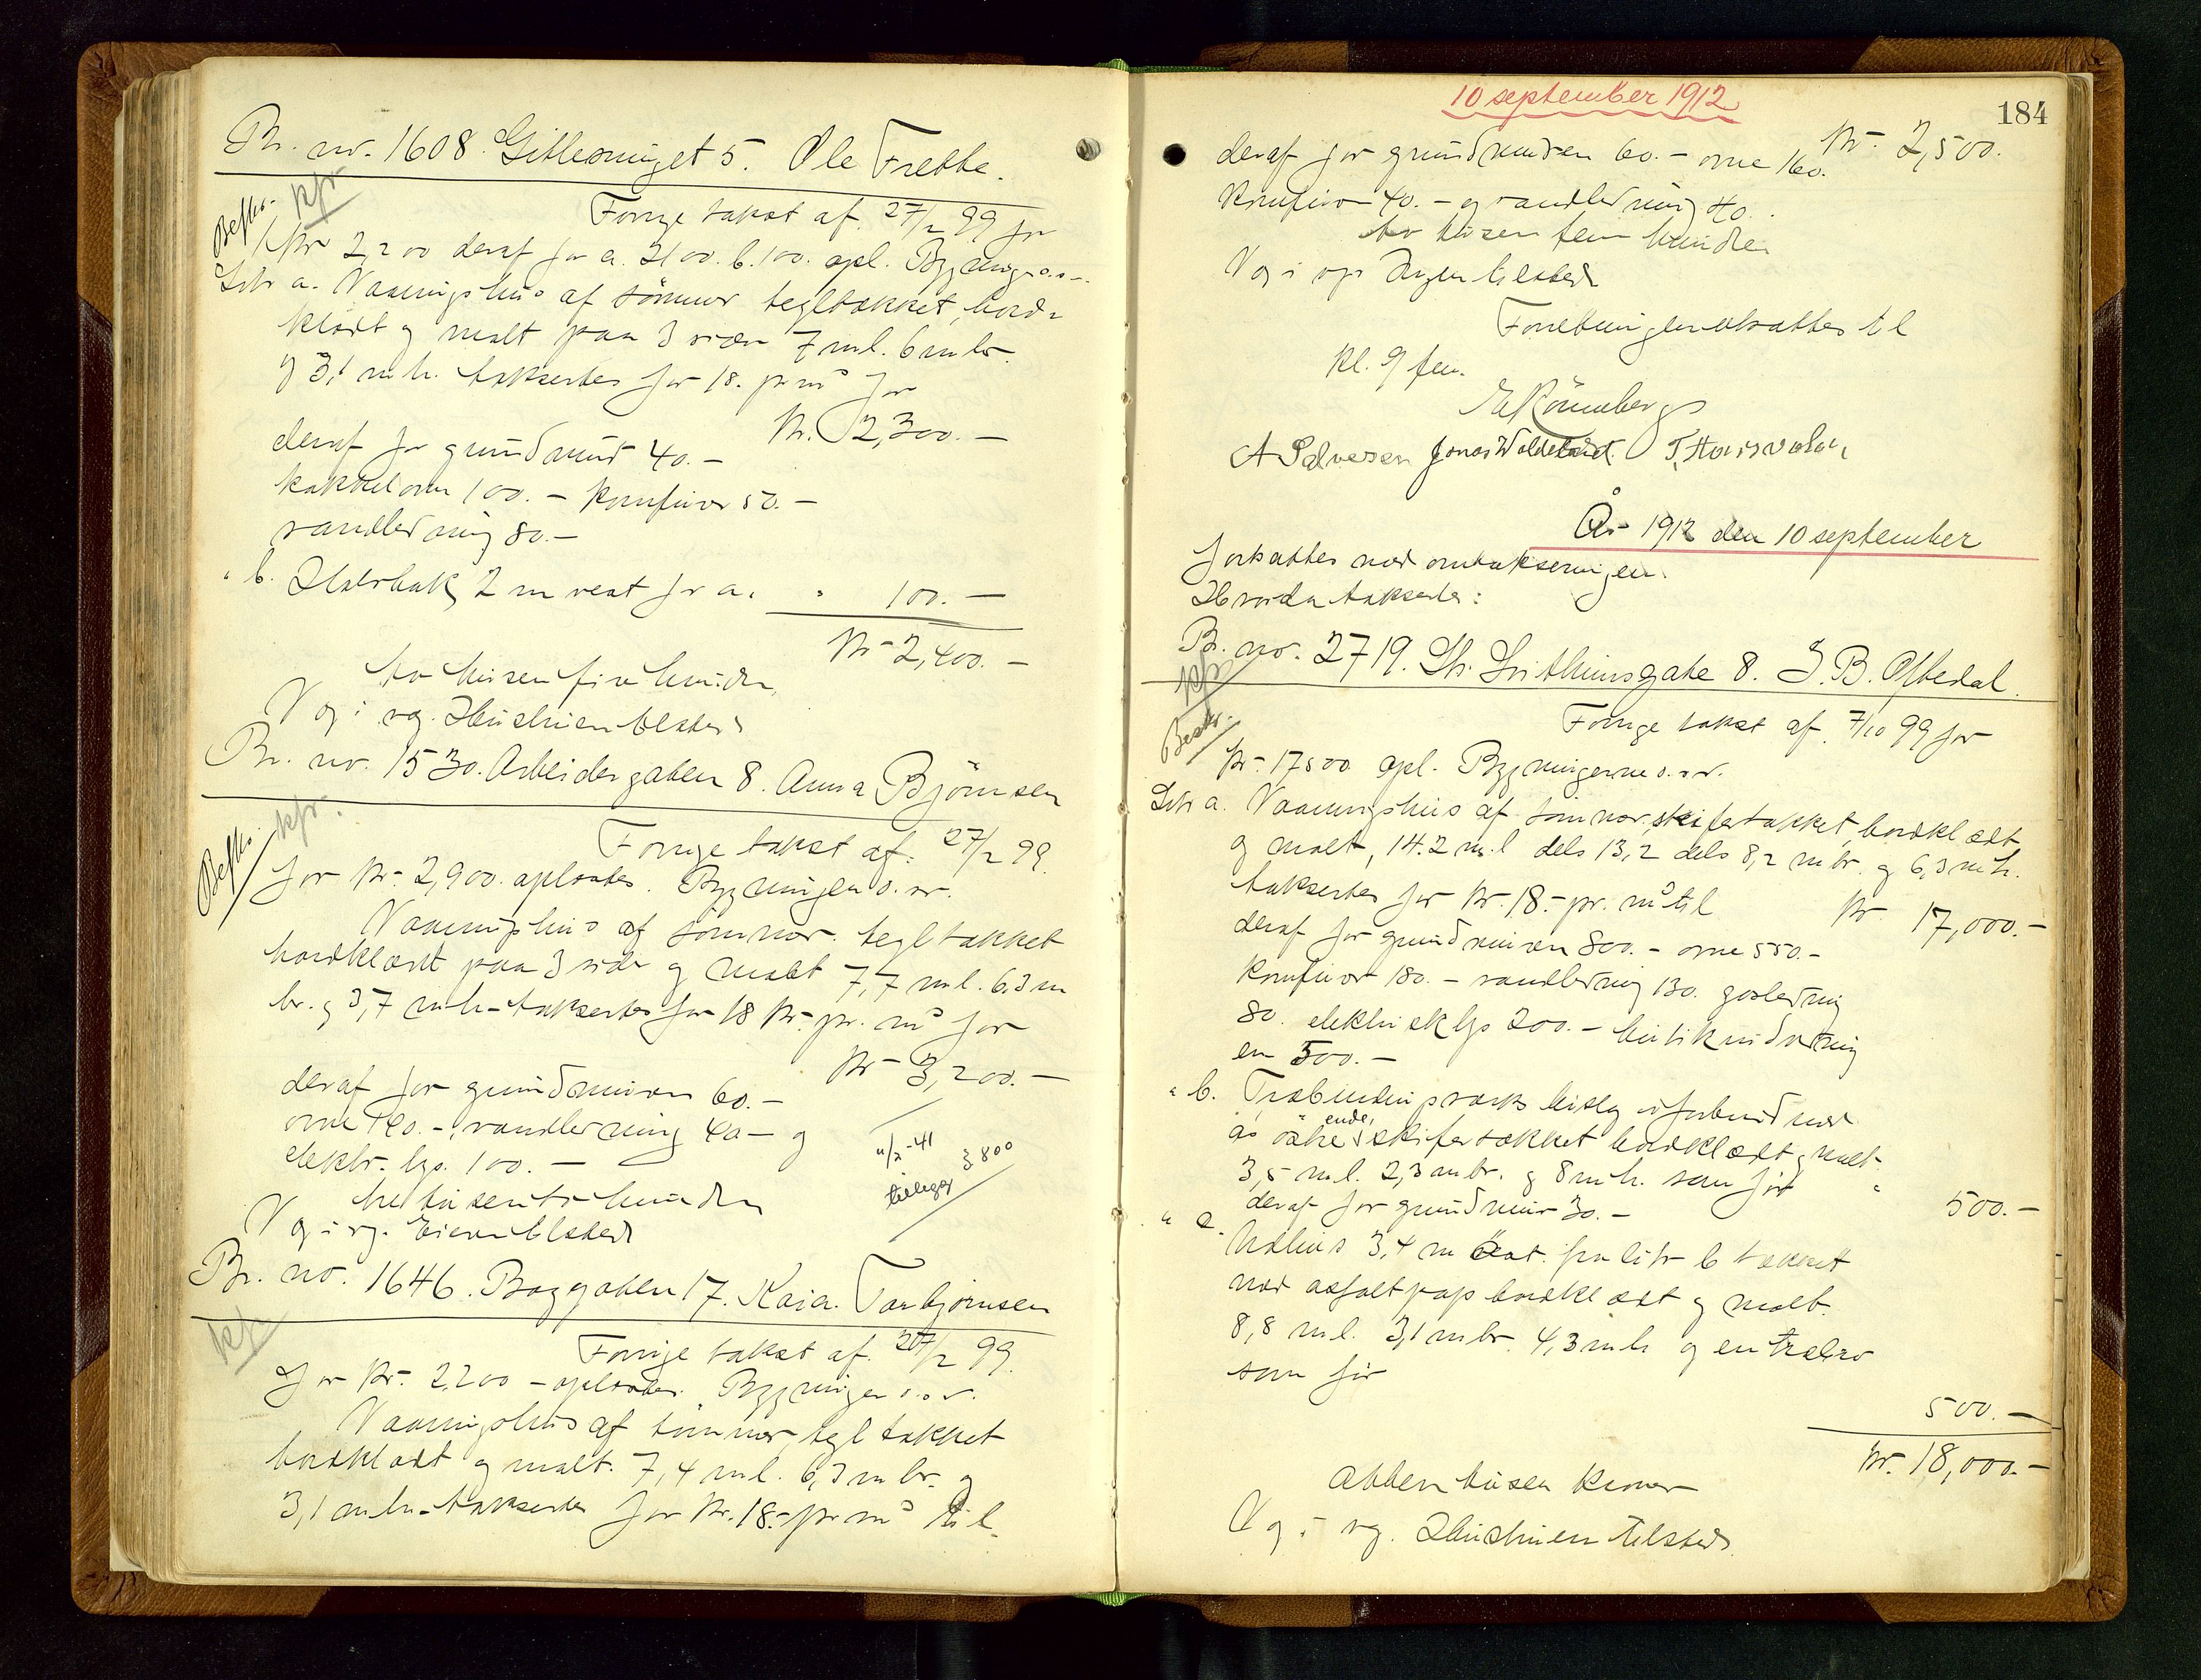 Br. nr. 1608. Gilleswinget 5. Ole Trette.
Beskr. kfr.
Forrige takst af 27/2 99 for
kr 2,200 deraf for a. 2100. b. 100. opl. Bygninger o.s.v.
Litr a. Vaaningshus af tømmer tegltækket, bord-
klædt og malt paa 3 sider 7 m l. 6 m br.
og 3,1 m h. takseres for 18. pr m³ for
Kr. 2,300.—
deraf for grundmur 40.—
kakkelovn 100.— komfur 50.—
vandledning 80.—
" b. Uthrbak, 2 m vest for a. " 100.—
Kr 2,400.—
to tusen fire hundre
V og i vg. Hustruen tilstede
Br. nr. 1530. Arbeidergaten 8. Anna Björnsen
Beskr. kfr.
Forrige takst af 27/2 99.
for kr. 2,900. oplæstes. Bygningen o.s.v.
Vaaningshus af tömmer tegltækket
bordklædt paa 3 sider og malt 7,7 m l. 6,3 m
br. og 3,7 m h. takseres for 18 kr. pr. m³ for
Kr 3,200.—
deraf for grundmuren 60.—
ovne 120.—, vandledning 40— og
elektr. lys. 100.—
11/2-41
tillegg 3800
tre tusen to hundre
V og i vg. Eieren tilstede
Br. nr. 1646. Boggaten 17. Kaia Torbjørnsen
kfr
Forrige takst af 27/2 99.
for kr. 2,200 – oplæstes. Bygningen o.s.v.
Vaaningshus af tömmer, tegltækket
bordklædt og malt. 7,4 m l. 6,3 m br. og
3,1 m h. takseres for kr. 18.- pr m³ til
10 september 1912
184
Kr. 2,500.
deraf for grundmuren 60.— ovne 160.
komfur 40.— og vandledning 40.
to tusen fem hundre
V og i vg. Ingen tilstede
Forretningen utsattes til
kl. 9 fm.
E Rönneberg
A Salvesen Jonas Woldeland T. Hovsvalen
År 1912 den 10 september
fortsattes med omtakseringen.
Hvorda takseres:
Br. nr. 2719. St. Svithunsgate 8. S. B. Oftedal.
kfr. Beskr.
Forrige takst af 7/10 99 for
kr. 17500 opl. Bygningerne o.s.v.
Litr a. Vaaningshus af tømmer, skifertækket, bordklædt
og malt, 14.2 m.l dels 13,2 dels 8,2 m br. og 6,3 m h.
takseres for kr. 18.- pr. m³ til Kr. 17,000.—
deraf for grundmuren 800.— ovne 550.—
komfur 180.— vandledning 130. gasledning
80. elektrisk lys 200.— butikindredning
en 500.—
" b. Træbindingsverks bislag i forbind med
a's østre ende, skifertækket bordklædt og malt
3,5 m l. 2,3 m br. og 8 m h. som før " 500.—
deraf for grundmur 30.—
" c. Uthus 3,4 m öst. fra litr b tækket
med asfaltpap bordklædt og malt.
8,8 m l. 3,1 m br. 4,3 m h og en træbro
som før
500.—
Kr. 18,000.—
Atten tusen kroner
V og i vg. Hustruen tilstede